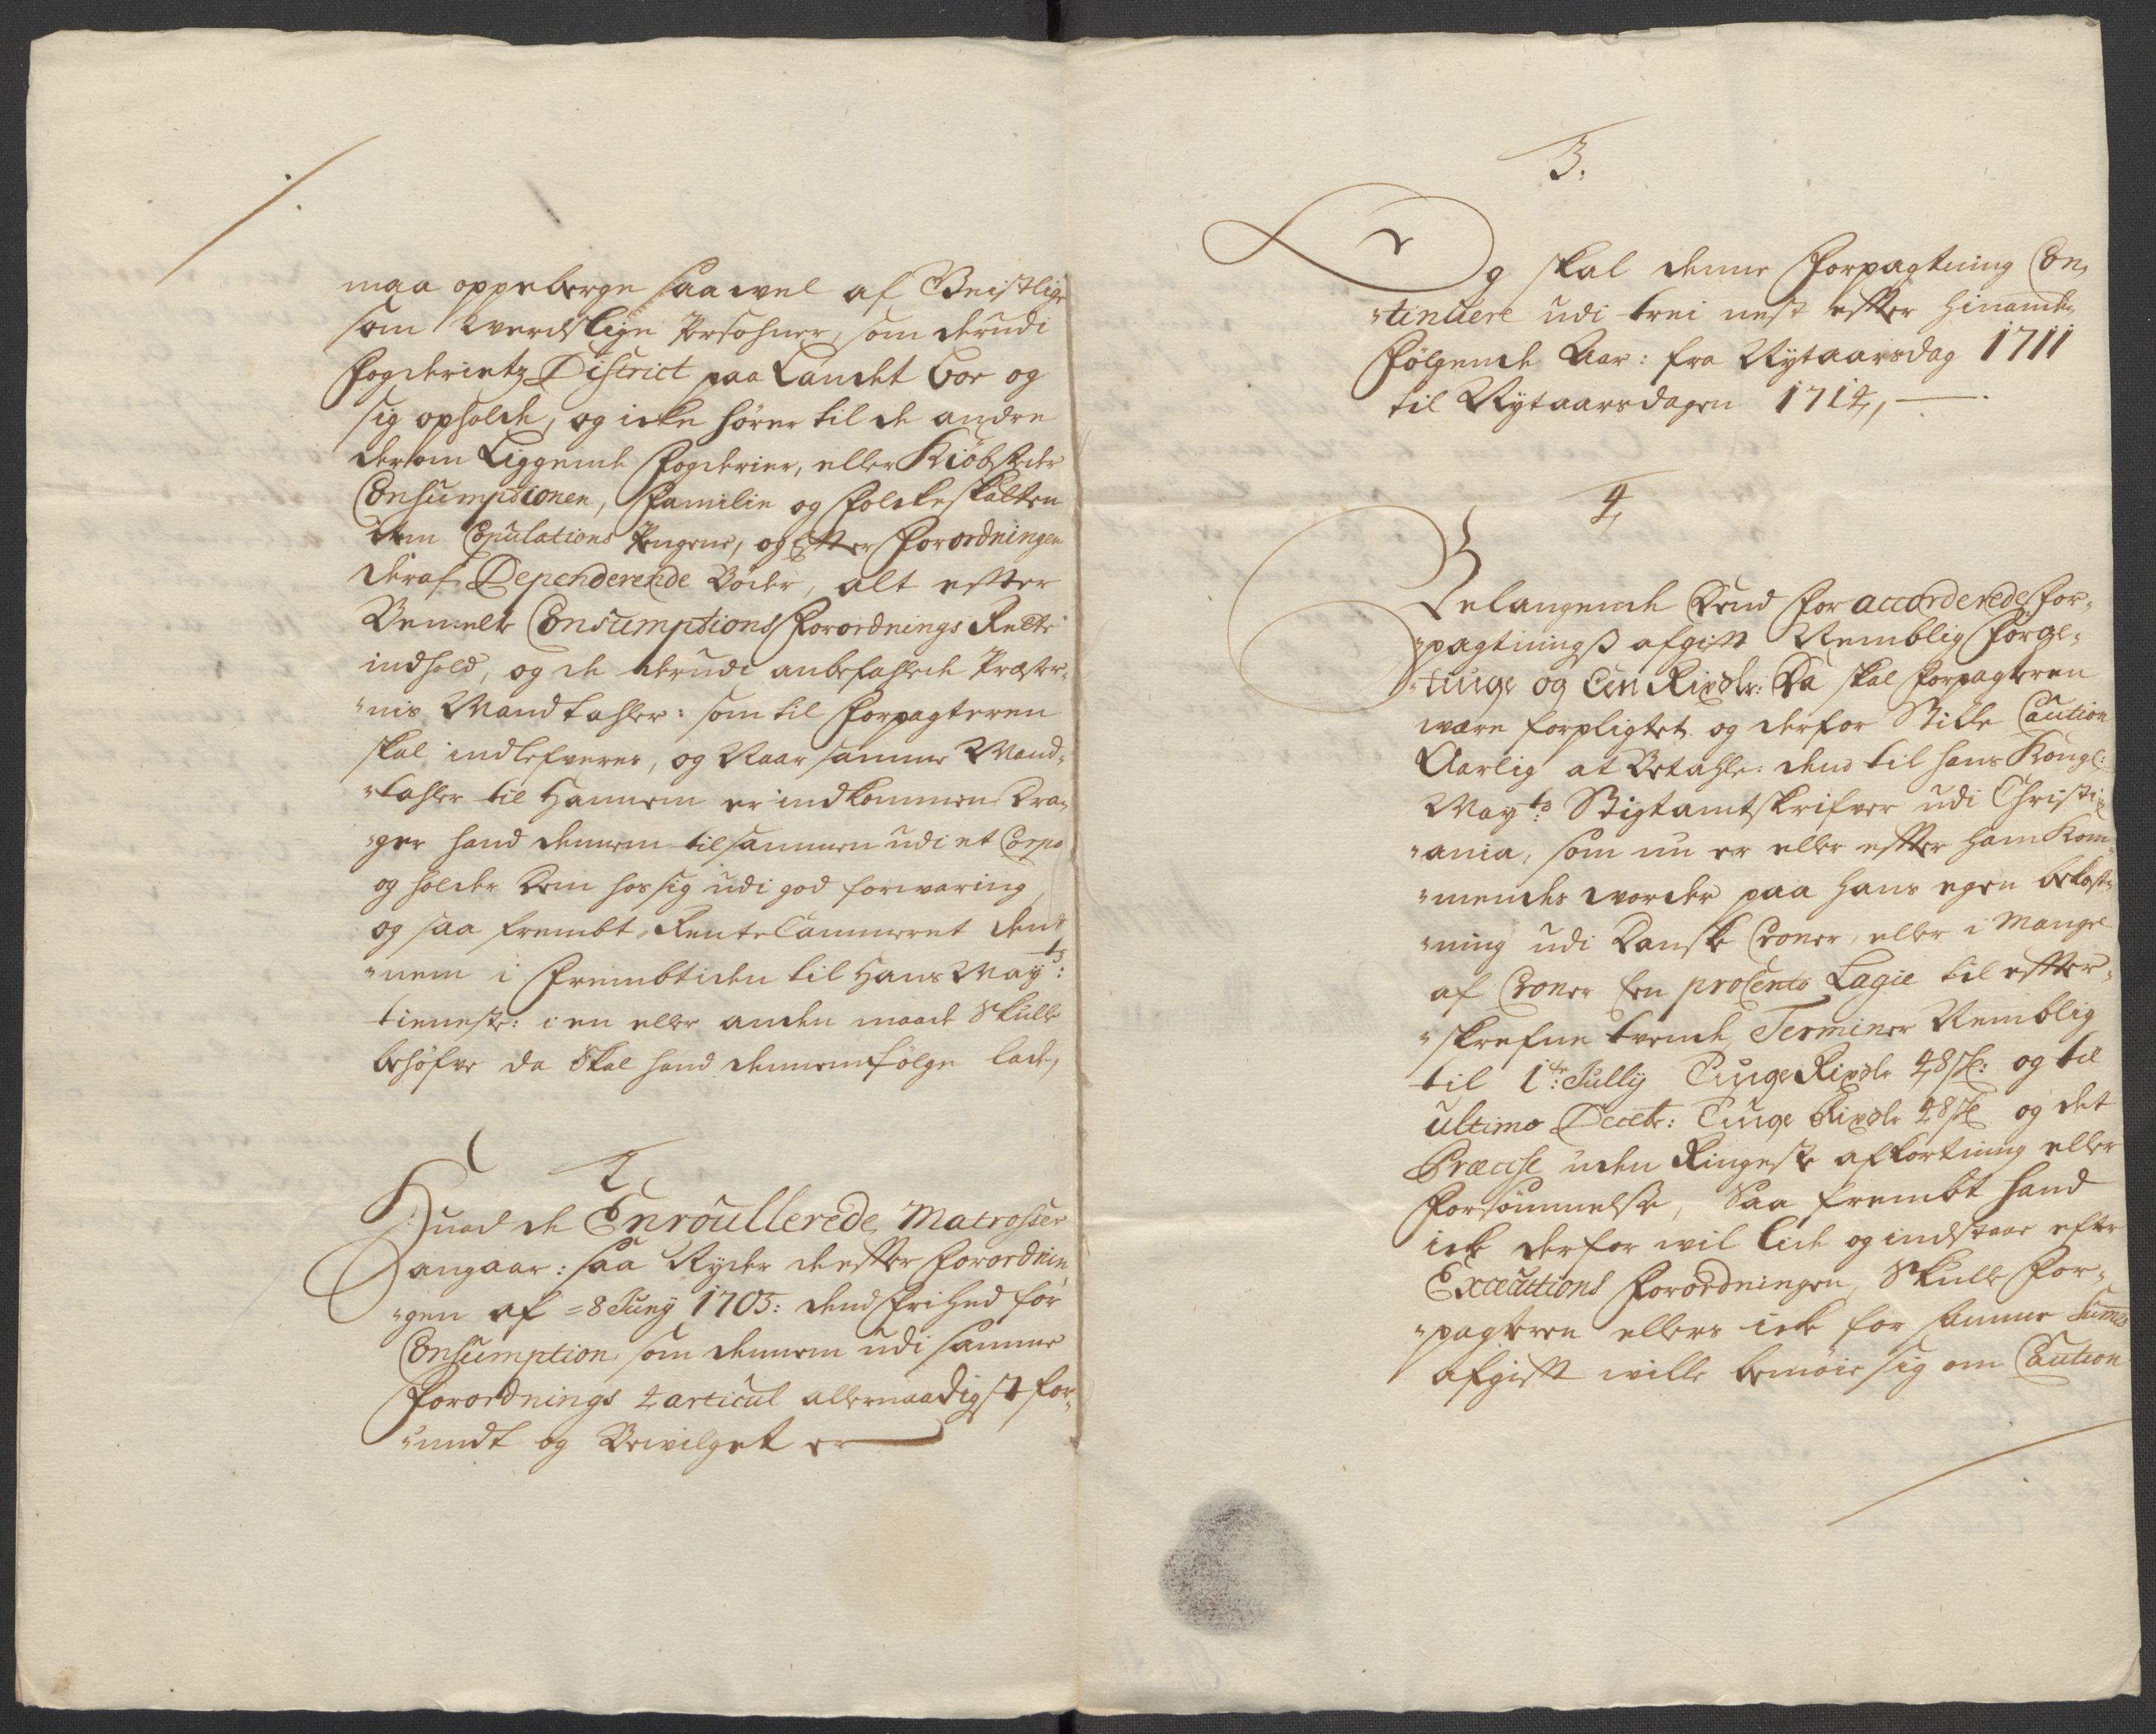 maa oppeberge saavel af Geistlige
som Werdslige Persohner, som derudi
Fogderietz District paa Landet boe og
sig opholde, og icke hører til de andre
deromliggende Fogderier, eller Kiøbstæder
Consumptionen, Familie og Folckeskatten
Item Copulations Pengene, og Efter Forordningen
deraf Dependerende Bøder, alt efter
Bemelte Consumptions Forordnings Rette
indhold, og de derudi anbefahlede Præster-
-nis Mandtahler: som til Forpagteren
skal indlefveres, og Naar samme Mand-
-tahler til Hannem er indkommen Dra-
-ger hand dennem tilsammen udi et Corpo
og holder dem hos sig udi god forwaring,
og saa frembt RenteCammeret den-
-nem i Fremtiden til Hans May:ts
tieneste: i en eller anden maade skulle
behøfve da skal hand dennem følge lade,
2,
Hvad de Enroullerede Matrosser
angaar: saa Nyder de efter Forordnin
-gen af =8 Juny 1705: dend Frihed for
Consumption, som dennem udi samme
Forordnings 4 articul allernaadigst for-
-undt og Bevilget er
3.
Og skal denne Forpagtning Con-
-tinuere udi trei nest efter hinanden
Følgende Aar: fra Nytaarsdag 1711
til Nytaarsdagen 1714,
4,
Belangende Dend For accorderede For-
-pagtnings afgift Nemblig Førge-
-tiuge og Een Rixdr: Da skal Forpagteren
være forpligtet og derfor Stille Caution
Aarlig at Betahle: dend til hans Kongl:
May:ts Stigtamtskrifver udi Christi-
-ania, som nu er eller efter ham Kom-
-mendes vorder paa hans egen bekost-
-ning udi Danske Croner, eller i Mangel
af Croner Een procento Lagie til efter-
-skrefne tvende Terminer Nemblig
til 1:te Jully Tiuge Rixdr 48 s: og til
ultimo Decebr: Tiuge Rixdr 48 s og det
Præcise uden Ringeste afkortning eller
Forsømmelse, Saa frembt hand
icke derfor vil lide og indstaae efter
Executions Forordningen, Skulle For-
-pagteren ellers icke for samme Summa
afgift ville bemøie sig om Caution